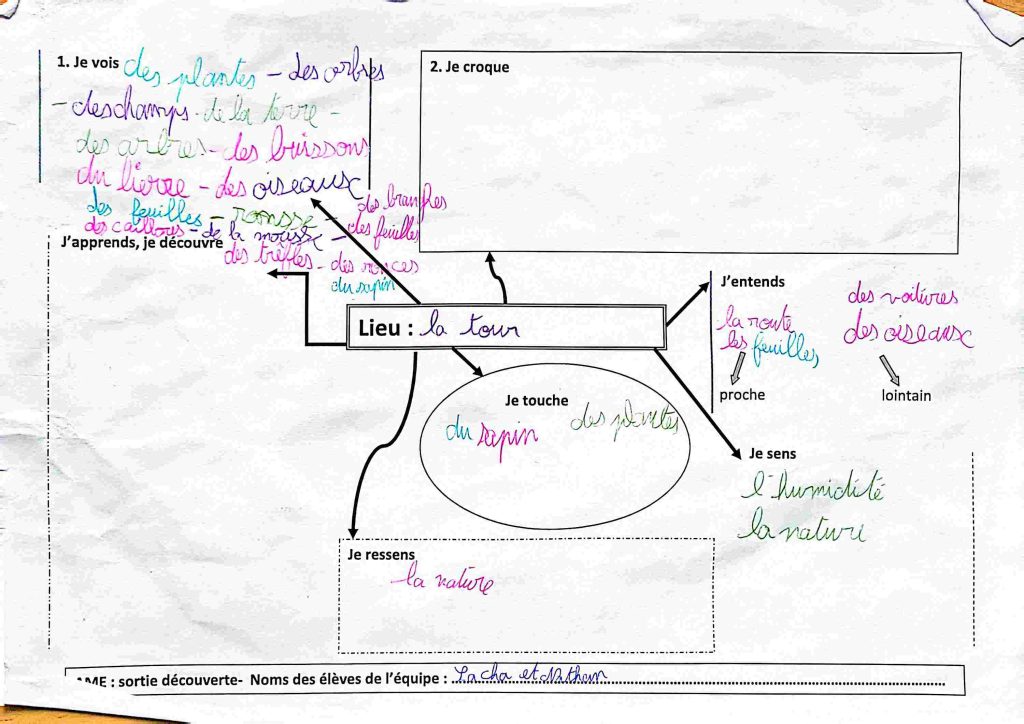 1. Je vois des plantes - des arbres
- des champs - de la terre -
des arbres - des buissons
du lierre - des oiseaux
des feuilles - ronsse - des branches
des cailloux - de la mousse - des feuilles
des trèfles - des ronces
du sapin
2. Je croque
J'apprends, je découvre
Lieu : la tour
J'entends
la route
les feuilles
proche
des voitures
des oiseaux
lointain
Je touche
du sapin
des plantes
Je sens
l'humidité
la nature
Je ressens
la nature
AME : sortie découverte- Noms des élèves de l'équipe : Sacha et Nathan